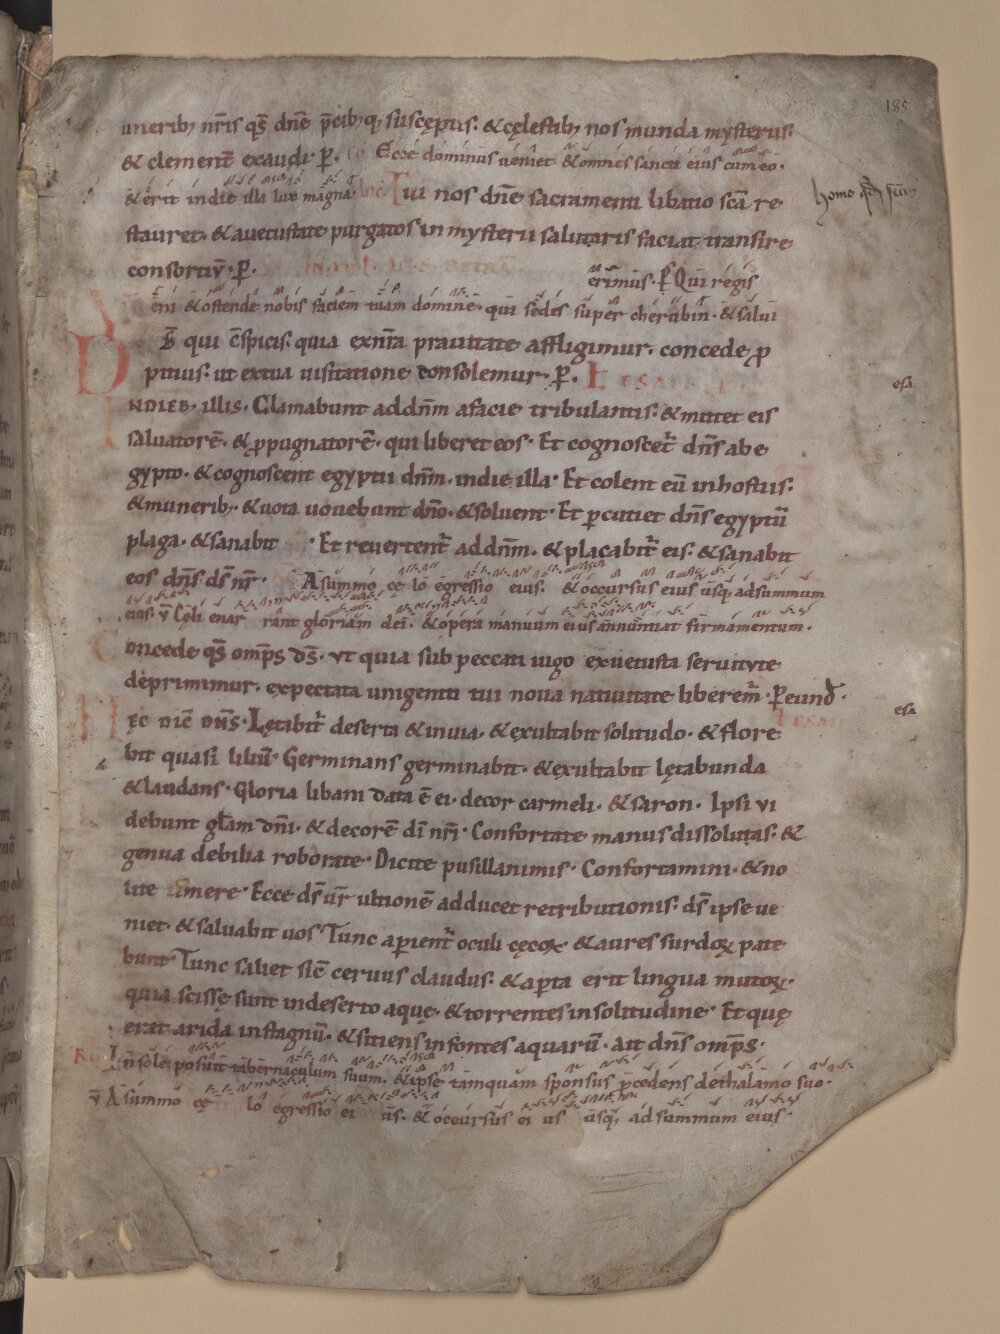 185
unerib; nr̄is qs̄ dnē p̄cib;q, susceptis. & cęlestib; nos munda mysteriis.
& clement̄ exaudi. P̄. Ecce dominus veniet & omnes sancti eius cum eo.
& erit in die illa lux magna. Tui nos dnē sacramenti libatio scā re
homo
stauret. & a uetustate purgatos in mysterii salutaris faciat transire
consortiū. P̄.
erimus. P̄s Qui regis
eni & ostende nobis faciem tuam domine. qui sedes super cherubin. & salui
D S̄ qui c̄spicis. quia ex nr̄a prauitate affligimur. concede p
pitius. ut ex tua uisitatione consolemur. P̄.
esa
I NDIEB; illis. Clamabunt ad dn̄m a facie tribulantis. & mittet eis
saluatorē. & ppugnatorē. qui liberet eos. Et cognoscet̄ dn̄s ab e
gypto. & cognoscent egyptii dn̄m. in die illa. Et colent eū in hostiis.
& munerib;. & uota uouebunt dn̄o. & soluent. Et p̄cutiet dn̄s egyptū
plaga. & sanabit . Et reuertent̄ ad dn̄m. & placabit̄ eis. & sanabit
eos dn̄s ds̄ nr̄. A summo cę lo egressio eius. & occursus eius usq, ad summum
eius. v̄ Cęli enar rant gloriam dei. & opera manuum eius annuntiat firmamentum.
C oncede qs̄ omp̄s ds̄. ut quia sub peccati iugo ex uetusta seruitute
deprimimur. expectata unigeniti tui noua natiuitate liberem̄. P̄ eund̄.
esa
H ęc dic̄ dn̄s. Lętabit̄ deserta & inuia. & exultabit solitudo. & flore
bit quasi liliū. Germinans germinabit. & exultabit lętabunda
& laudans. Gloria libani data ē ei. decor carmeli. & saron. Ipsi vi
debunt gl̄am dn̄i. & decorē dī nr̄i. Confortate manus dissolutas. &
genua debilia roborate. Dicite pusillanimis. Confortamini. & no
lite timere. Ecce ds̄ ur̄ ultionē adducet retributionis. ds̄ ipse ue
niet. & saluabit uos. Tunc aperient̄ oculi cęcoꝝ. & aures surdoꝝ pate
bunt. Tunc saliet sic̄ ceruus claudus. & apta erit lingua mutoꝝ.
quia scissę sunt in deserto aquę. & torrentes in solitudine. Et quę
erat arida in stagnū. & sitiens in fontes aquarū. ait dn̄s omp̄s.
In sole posuit tabernaculum suum. & ipse tamquam sponsus p̄cedens de thalamo suo.
v̄ A summo cę lo egressio ei us. & occursus ei us usq, ad summum eius